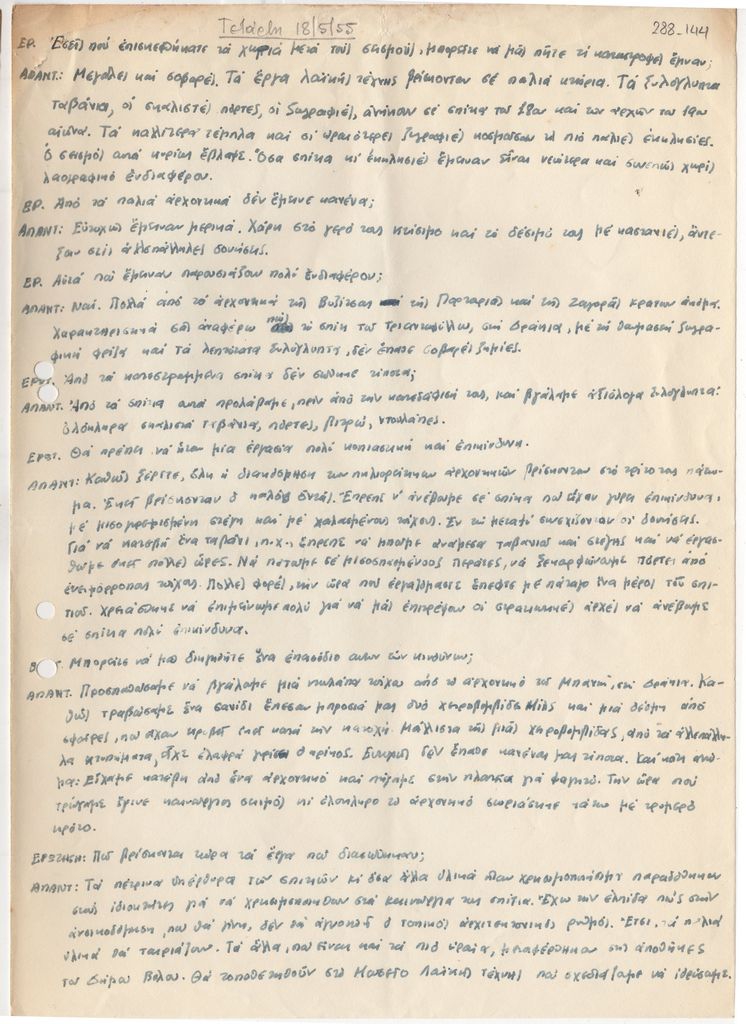 Τετάρτη 18/5/55
288-144
ΕΡ. Ἐσεῖς ποὺ ἐπισκεφθήκατε τὰ χωριὰ μετὰ τοὺς σεισμούς, μπορεῖτε νὰ μᾶς πῆτε τί καταστροφές ἔγιναν;
ΑΠΑΝΤ: Μεγάλες καὶ σοβαρές. Τὰ ἔργα λαϊκῆς τέχνης βρίσκονταν σὲ παλιὰ κτίρια. Τὰ ξυλόγλυπτα
ταβάνια, οἱ σκαλιστὲς πόρτες, οἱ ζωγραφιές, ἀνῆκαν σὲ σπίτια τοῦ 18ου καὶ τῶν ἀρχῶν τοῦ 19ου
αἰῶνα. Τὰ καλλίτερα τέμπλα καὶ οἱ ὡραιότερες ζωγραφιὲς κοσμοῦσαν τὶς πιὸ παλιὲς ἐκκλησίες.
Ὁ σεισμὸς αὐτὰ κυρίως ἔβλαψε. Ὅσα σπίτια κι' ἐκκλησιὲς ἔμειναν εἶναι νεώτερα καὶ συνεπῶς χωρὶς
λαογραφικὸ ἐνδιαφέρον.
ΕΡ. Ἀπὸ τὰ παλιὰ ἀρχοντικὰ δὲν ἔμεινε κανένα;
ΑΠΑΝΤ: Εὐτυχῶς ἔμειναν μερικά. Χάρη στὸ γερό τους κτίσιμο καὶ τὸ δέσιμό τους μὲ καστανιές, ἄντε-
ξαν στὶς ἀλλεπάλληλες δονήσεις.
ΕΡ. Αὐτὰ ποὺ ἔμειναν παρουσιάζουν πολὺ ἐνδιαφέρον;
ΑΠΑΝΤ: Ναί. Πολλὰ ἀπὸ τὰ ἀρχοντικὰ τῆς Βυζίτσας τῆς Πορταριᾶς καὶ τῆς Ζαγορᾶς κρατοῦν ἀκόμα.
Χαρακτηριστικὰ σᾶς ἀναφέρω πὼς τὸ σπίτι τοῦ Τριανταφύλλου, στὴ Δράκια, μὲ τὴ θαυμαστὴ ζωγρα-
φικὴ φρίζα καὶ τὰ λεπτότατα ξυλόγλυπτα, δὲν ἔπαθε σοβαρὲς ζημίες.
ΕΡΩΤ. Ἀπὸ τὰ κατεστραμμένα σπίτια δὲν σώθηκε τίποτα;
ΑΠΑΝΤ. Ἀπὸ τὰ σπίτια αὐτὰ προλάβαμε, πρὶν ἀπὸ τὴν κατεδάφισή τους, καὶ βγάλαμε ἀξιόλογα ξυλόγλυπτα:
ὁλόκληρα σκαλιστὰ ταβάνια, πόρτες, βιτρώ, ντουλάπες.
ΕΡΩΤ. Θὰ πρέπει νὰ ἦταν μία ἐργασία πολὺ κοπιαστικὴ καὶ ἐπικίνδυνη.
ΑΠΑΝΤ: Καθὼς ξέρετε, ὅλη ἡ διακόσμηση τῶν πηλιορείτικων ἀρχοντικῶν βρίσκονταν στὸ τρίτο τους πάτω-
μα. Ἐκεῖ βρίσκονταν ὁ καλὸς ὀντάς. Ἔπρεπε ν' ἀνέβωμε σὲ σπίτια ποὺ εἶχαν γύρει ἐπικίνδυνα,
μὲ μισογκρεμισμένη στέγη καὶ μὲ χαλασμένους τοίχους. Ἐν τῷ μεταξὺ συνεχίζονταν οἱ δονήσεις.
Γιὰ νὰ κατεβῇ ἕνα ταβάνι, π.χ., ἔπρεπε νὰ μποῦμε ἀνάμεσα ταβανιοῦ καὶ στέγης καὶ νὰ ἐργασ-
θοῦμε ἐκεῖ πολλὲς ὧρες. Νὰ πατοῦμε σὲ μισοσπασμένους πάτους, νὰ ξεκαρφώνωμε πόρτες ἀπὸ
ἑτοιμόρροπους τοίχους. Πολλὲς φορές, τὴν ὥρα ποὺ ἐργαζόμαστε ἔπεφτε μὲ πάταγο ἕνα μέρος τοῦ σπι-
τιοῦ. Χρειάσθηκε νὰ ἐπιμείνωμε πολὺ γιὰ νὰ μᾶς ἐπιτρέψουν οἱ στρατιωτικὲς ἀρχὲς νὰ ἀνέβωμε
σὲ σπίτια πολὺ ἐπικίνδυνα.
Μπορεῖτε νὰ μοῦ διηγηθῆτε ἕνα ἐπεισόδιο αὐτῶν τῶν κινδύνων;
ΑΠΑΝΤ. Προσπαθούσαμε νὰ βγάλωμε μιὰ ντουλάπα τοίχου ἀπὸ τὸ ἀρχοντικὸ τοῦ στὴ Δράκια. Κα-
θὼς τραβούσαμε ἕνα σανίδι ἔπεσαν μπροστά μας δυὸ χειροβομβίδες Μίλς καὶ μιὰ δέσμη ἀπὸ
σφαῖρες, ποὺ εἶχαν κρυφτῆ ἐκεῖ κατὰ τὴν κατοχή. Μάλιστα τῆς μιᾶς χειροβομβίδας, ἀπὸ τὰ ἀλλεπάλλη-
λα κτυπήματα, εἶχε ἐλαφρὰ ὁ πίρος. Εὐτυχῶς δὲν ἔπαθε κανένας μας τίποτα. Καὶ κάτι ἀκό-
μα: Εἴχαμε κατέβη ἀπὸ ἕνα ἀρχοντικὸ καὶ πήγαμε στὴν πλατεῖα γιὰ φαγητό. Τὴν ὥρα ποὺ
τρώγαμε ἔγινε καινούργιος σεισμὸς κι' ὁλόκληρο τὸ ἀρχοντικὸ σωριάστηκε κάτω μὲ τρομερὸ
κρότο.
ΕΡΩΤΗΣΗ: Ποῦ βρίσκονται τώρα τὰ ἔργα ποὺ διασώθηκαν;
ΑΠΑΝΤ: Τὰ πέτρινα ὑπέρθυρα τῶν σπιτιῶν κι' ὅσα ἄλλα ὑλικὰ ἦταν χρησιμοποιήσιμα παραδόθηκαν
στοὺς ἰδιοκτῆτες γιὰ νὰ χρησιμοποιηθοῦν στὰ καινούργια τους σπίτια. Ἔχω τὴν ἐλπίδα πὼς στὴν
ἀνοικοδόμηση, ποὺ θὰ γίνῃ, δὲν θὰ ἀγνοηθῆ ὁ τοπικὸς ἀρχιτεκτονικὸς ρυθμός. Ἔτσι, τὰ παλιὰ
ὑλικὰ θὰ ταιριάζουν. Τὰ ἄλλα, ποὺ εἶναι καὶ τὰ πιὸ ὡραῖα, μεταφέρθηκαν στὶς ἀποθῆκες
τοῦ Δήμου Βόλου. Θὰ τοποθετηθοῦν στὸ Μουσεῖο Λαϊκῆς Τέχνης ποὺ σχεδιάζαμε νὰ ἱδρύσωμε.